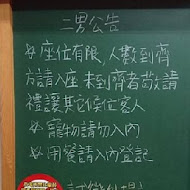 二男公告
※座位有限,人數到齊
方請入座 未到齊者敬請
禮讓其它候位客人
※寵物請勿入內
※用餐請入內登記